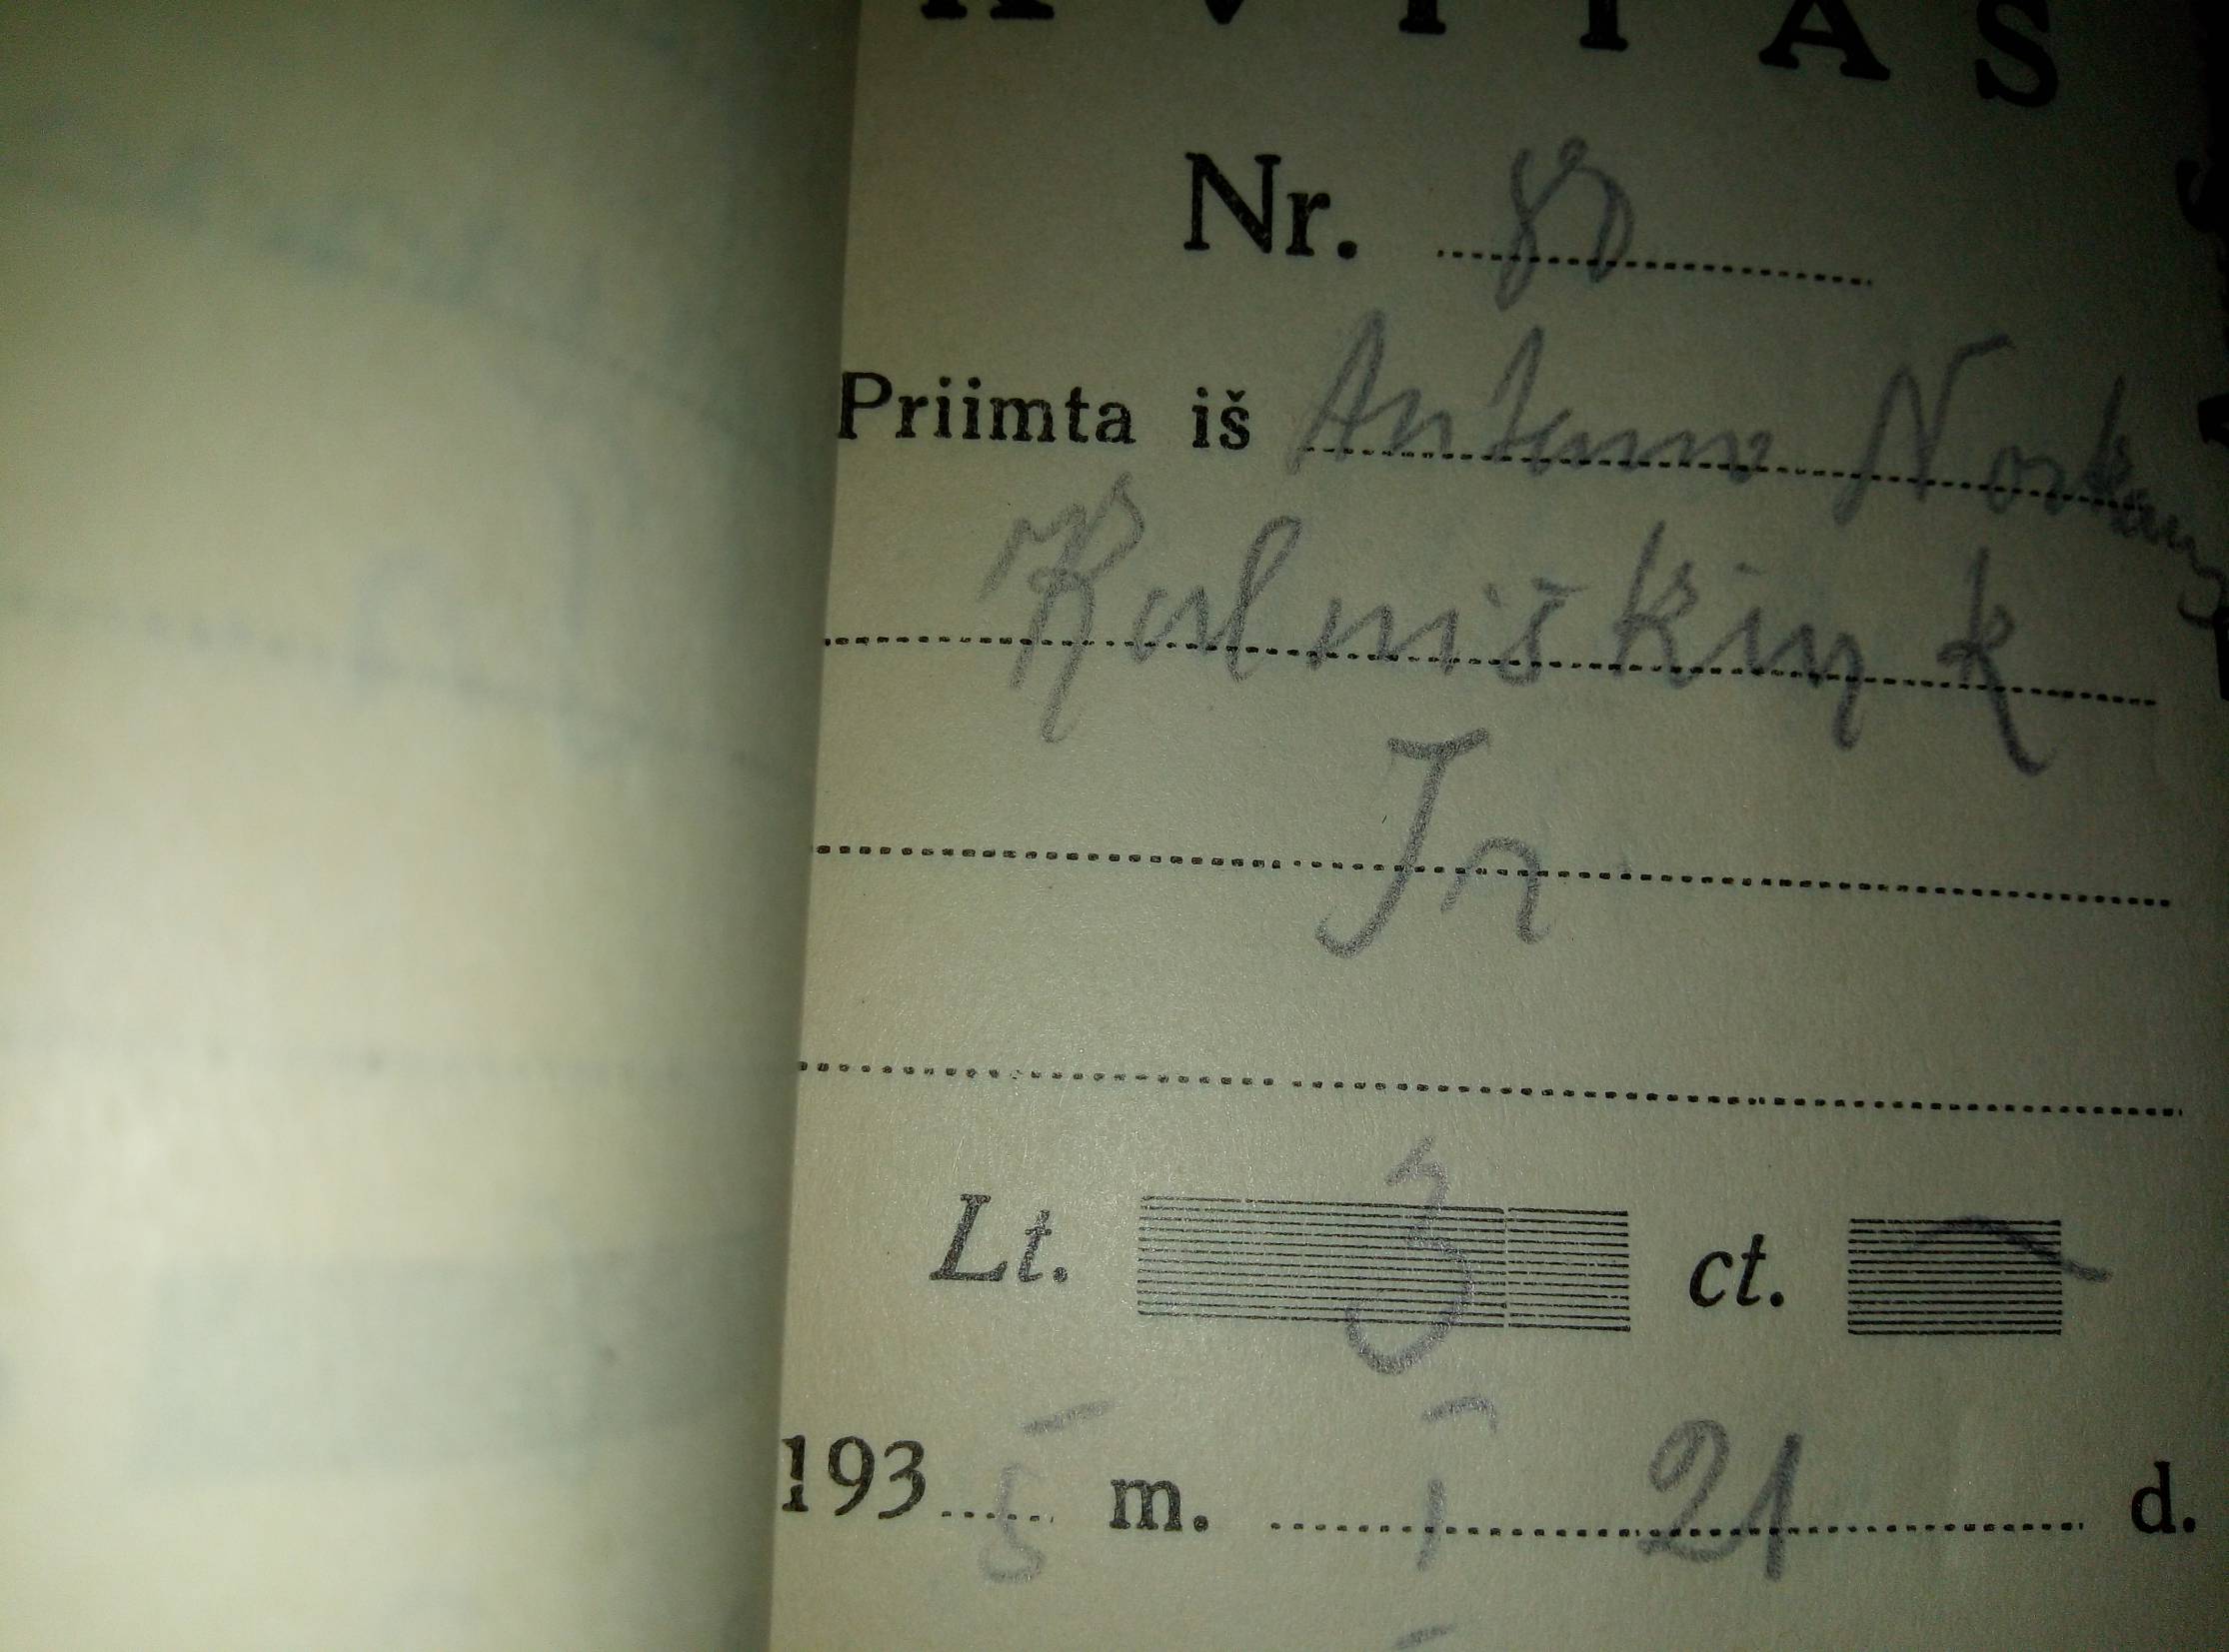 KVITAS
Nr. 80
Priimta iš Antano Norkaus
Kalniškių k
Tr
Lt. 3 ct. —
1935 m. 1 21 d.